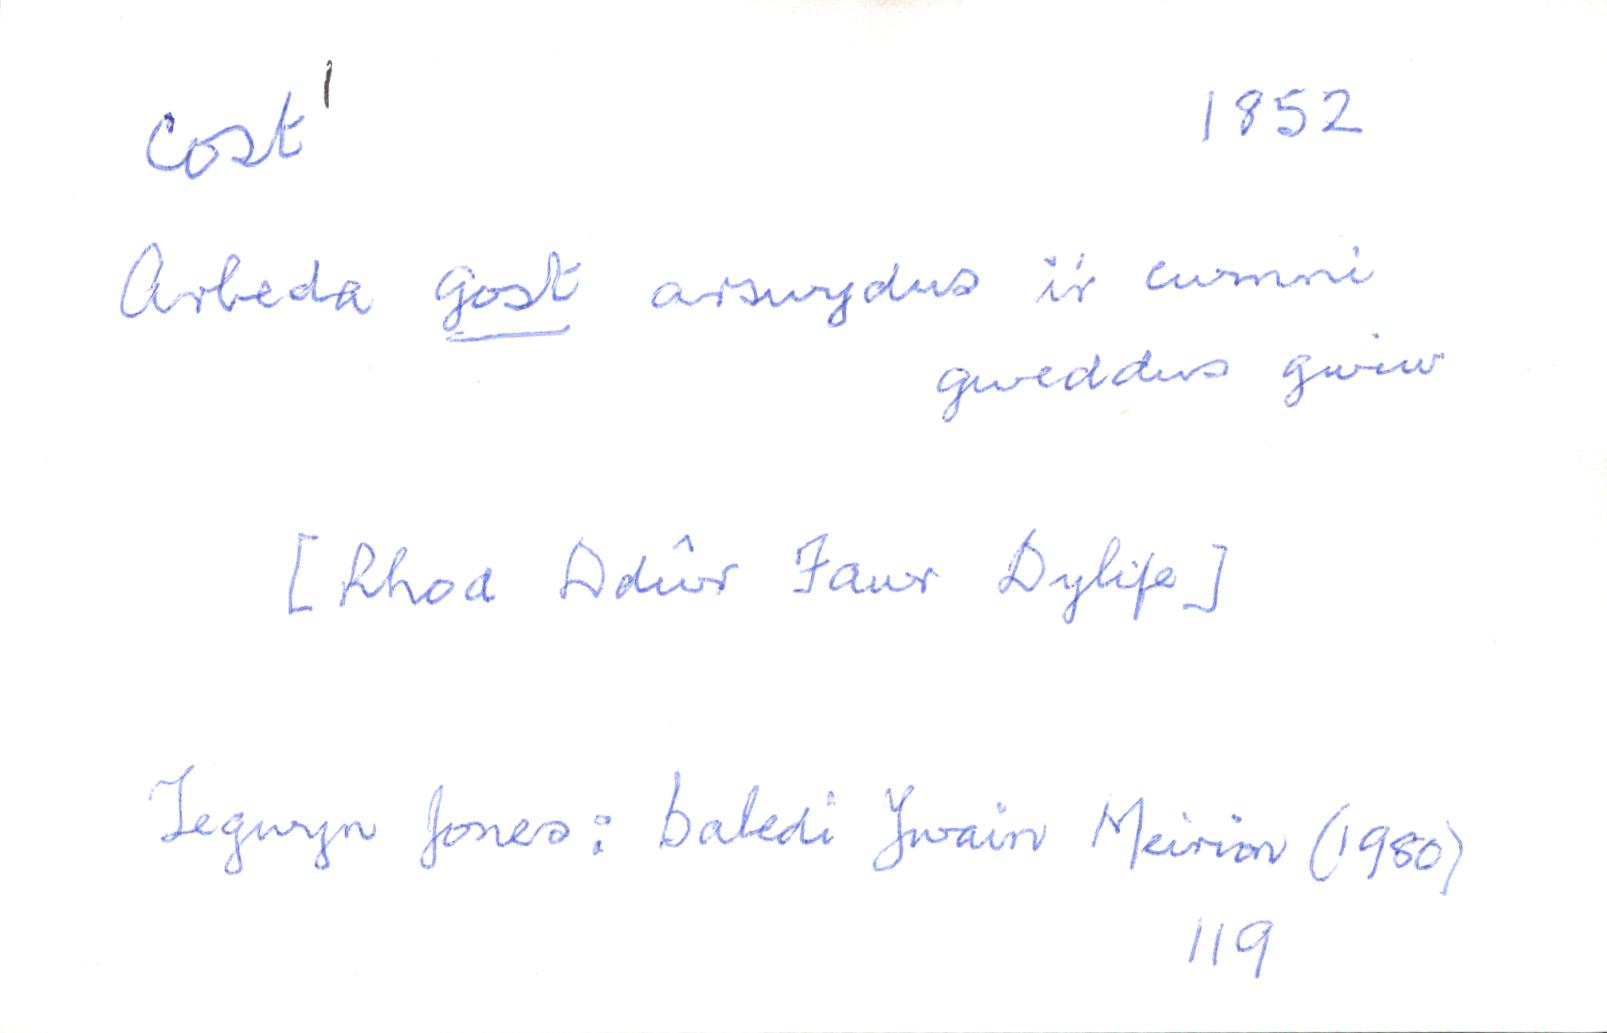 cost¹ 1852
Arbeda gost arswydus i'r cwmni
gweddus gwiw
[Rhod Ddŵr Fawr Dylife]
Tegwyn Jones: Baledi Ywain Meirion (1980)
119